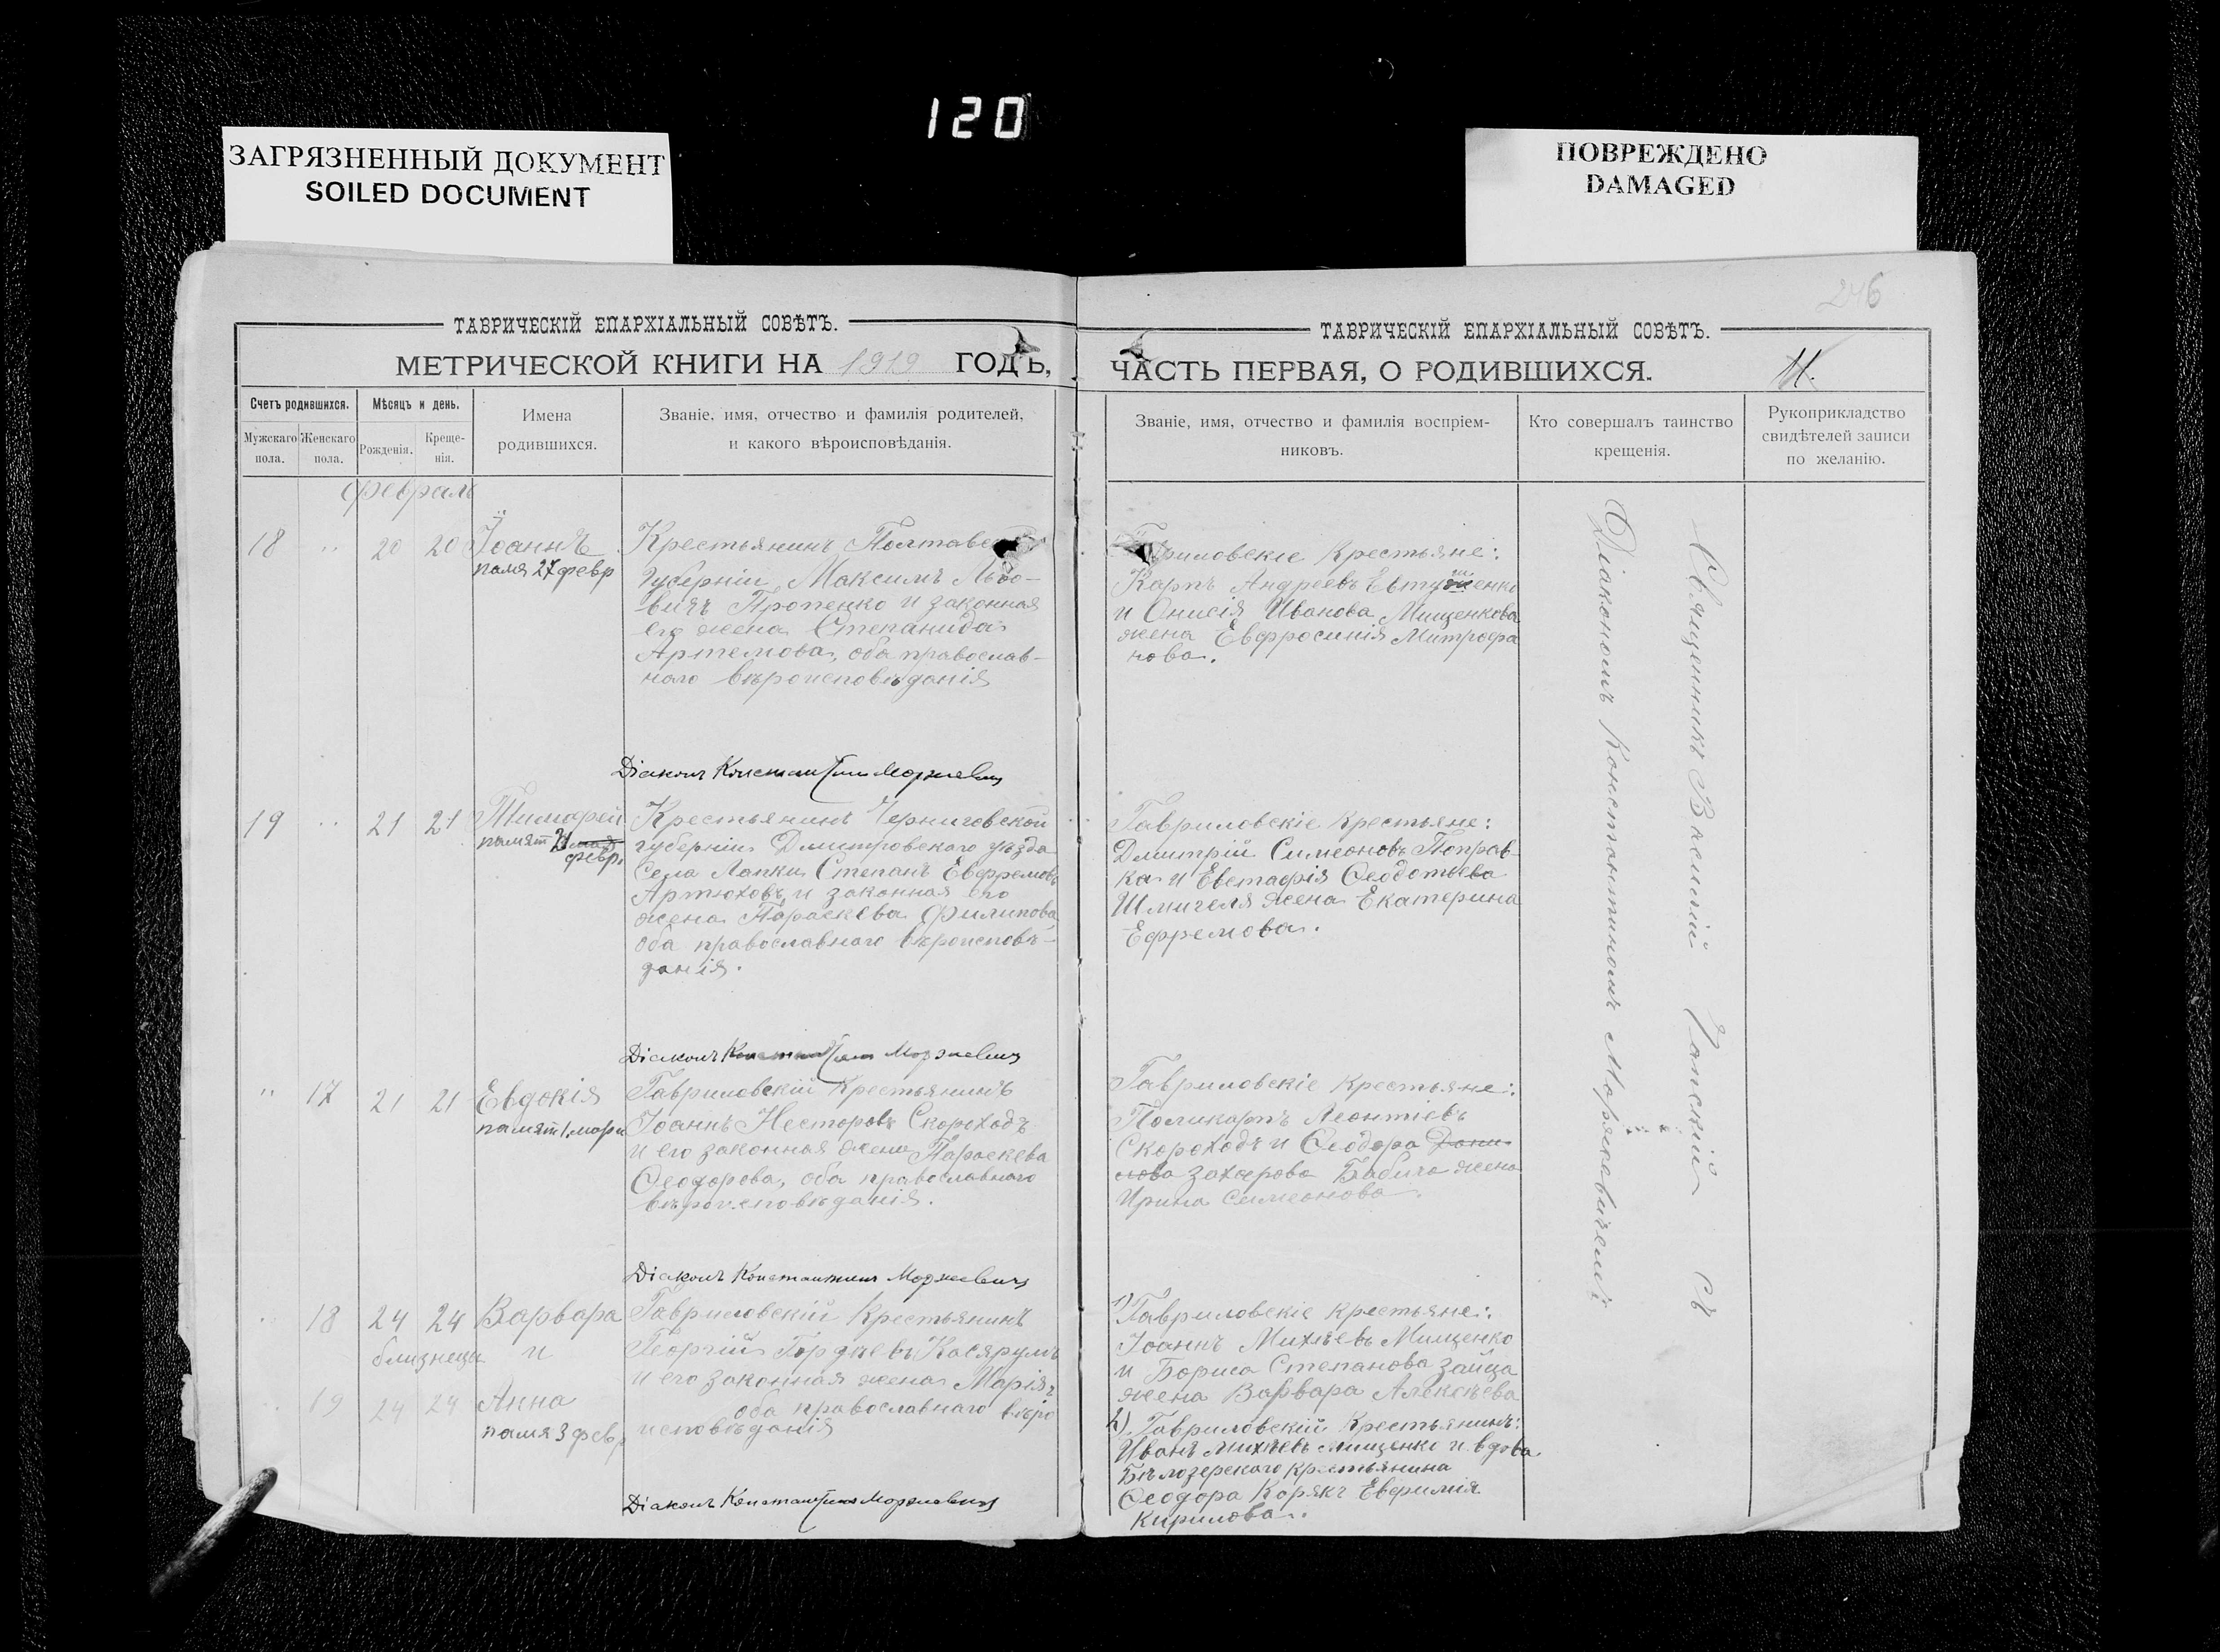 120
ЗАГРЯЗНЕННЫЙ ДОКУМЕНТ
SOILED DOCUMENT
ПОВРЕЖДЕНО
DAMAGED
246
ТАВРИЧЕСКІЙ ЕПАРХІАЛЬНЫЙ СОВѢТЪ.
МЕТРИЧЕСКОЙ КНИГИ НА 1919 ГОДЪ,
Счетъ родившихся.
Мужскаго пола.
Женскаго пола.
Мѣсяцъ и день.
Рожденія.
Креще-
нія.
Имена
родившихся.
Званіе, имя, отчество и фамилія родителей,
и какого вѣроисповѣданія.
февраль
18 " 20 20 Іоаннъ
памя 27 февр
Крестьянинъ Полтавс
губерніи, Максимъ Льво-
вичъ Пропенко и законная
его жена Степанида
Артемова, оба православ-
наго вѣроисповѣданія
Діаконъ Константинъ Моржевичъ
19 " 21 21 Тимофей
памят 21
февр.
Крестьянинъ Черниговской
губерніи Дмитровскаго уѣзда
Села Лапки Степанъ Евфремовъ
Артюховъ и законная его
жена Параскева Филипова
оба православнаго вѣроисповѣ-
данія.
Діаконъ Константинъ Моржевичъ
" 17 21 21 Евдокія
памят 1 мар
Гавриловскій Крестьянинъ
Іоаннъ Несторовъ Скороходъ
и его законная жена Параскева
Ѳеодорова, оба православнаго
вѣроисповѣданія.
Діаконъ Константинъ Моржевичъ
18 24 24 Варвара
близнецы и
19 24 24 Анна
памя 3 февр
Гавриловскій Крестьянинъ
Георгій Гордѣевъ Касярумъ
и его законная жена Марія
оба православнаго вѣро
исповѣданія
Діаконъ Константинъ Моржевичъ
ТАВРИЧЕСКІЙ ЕПАРХІАЛЬНЫЙ СОВѢТЪ.
ЧАСТЬ ПЕРВАЯ, О РОДИВШИХСЯ.
11.
Званіе, имя, отчество и фамилія воспріем-
никовъ.
Кто совершалъ таинство
крещенія.
Рукоприкладство
свидѣтелей записи
по желанію.
Гавриловскіе Крестьяне:
Карпъ Андреевъ Евтушенко
и Онисія Иванова Мищенкова
жена Евфросинія Митрофа
нова.
Гавриловскіе Крестьяне:
Дмитрій Симеоновъ Поправ-
ка и Евстафія Ѳеодотіева
Шмигеля жена Екатерина
Ефремова.
Гавриловскіе Крестьяне:
Поликарпъ Леонтіевъ
Скороходъ и Ѳеодора Дани-
лова Захарова Бабича жена
Ирина Симеонова.
1) Гавриловскіе Крестьяне:
Іоаннъ Михѣевъ Мищенко
и Бориса Степанова Зайца
жена Варвара Алексѣева
2) Гавриловскій Крестьянинъ:
Иванъ Михѣевъ Мищенко и вдова
Бѣлозерскаго крестьянина
Ѳеодора Корякъ Евфимія
Кирилова.
Священникъ Василій Ганскій съ
Діакономъ Константиномъ Моржевичемъ